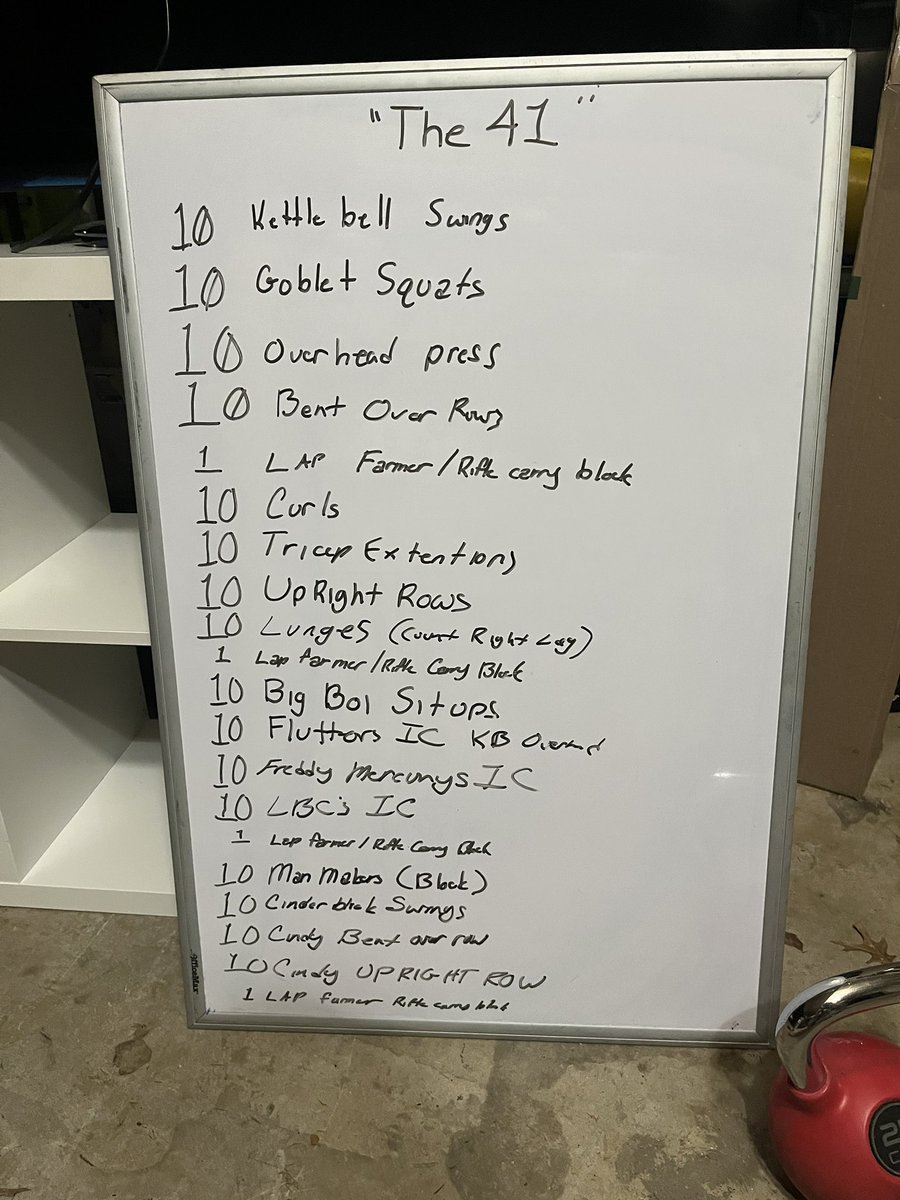 "The 41"
10 Kettle bell Swings
10 Goblet Squats
10 Overhead press
10 Bent Over Rows
1 LAP Farmer/Rifle carry block
10 Curls
10 Tricep Extentions
10 UpRight Rows
10 Lunges (Count Right Leg)
1 Lap farmer/Rifle Carry Block
10 Big Boi Situps
10 Fluttors IC KB Overhead
10 Freddy Mercurys IC
10 LBC's IC
1 Lap farmer/Rifle Carry Block
10 Man Makers (Block)
10 Cinder block Swings
10 Cindy Bent over row
10 Cindy UPRIGHT ROW
1 LAP farmer Rifle carry block
OfficeMax